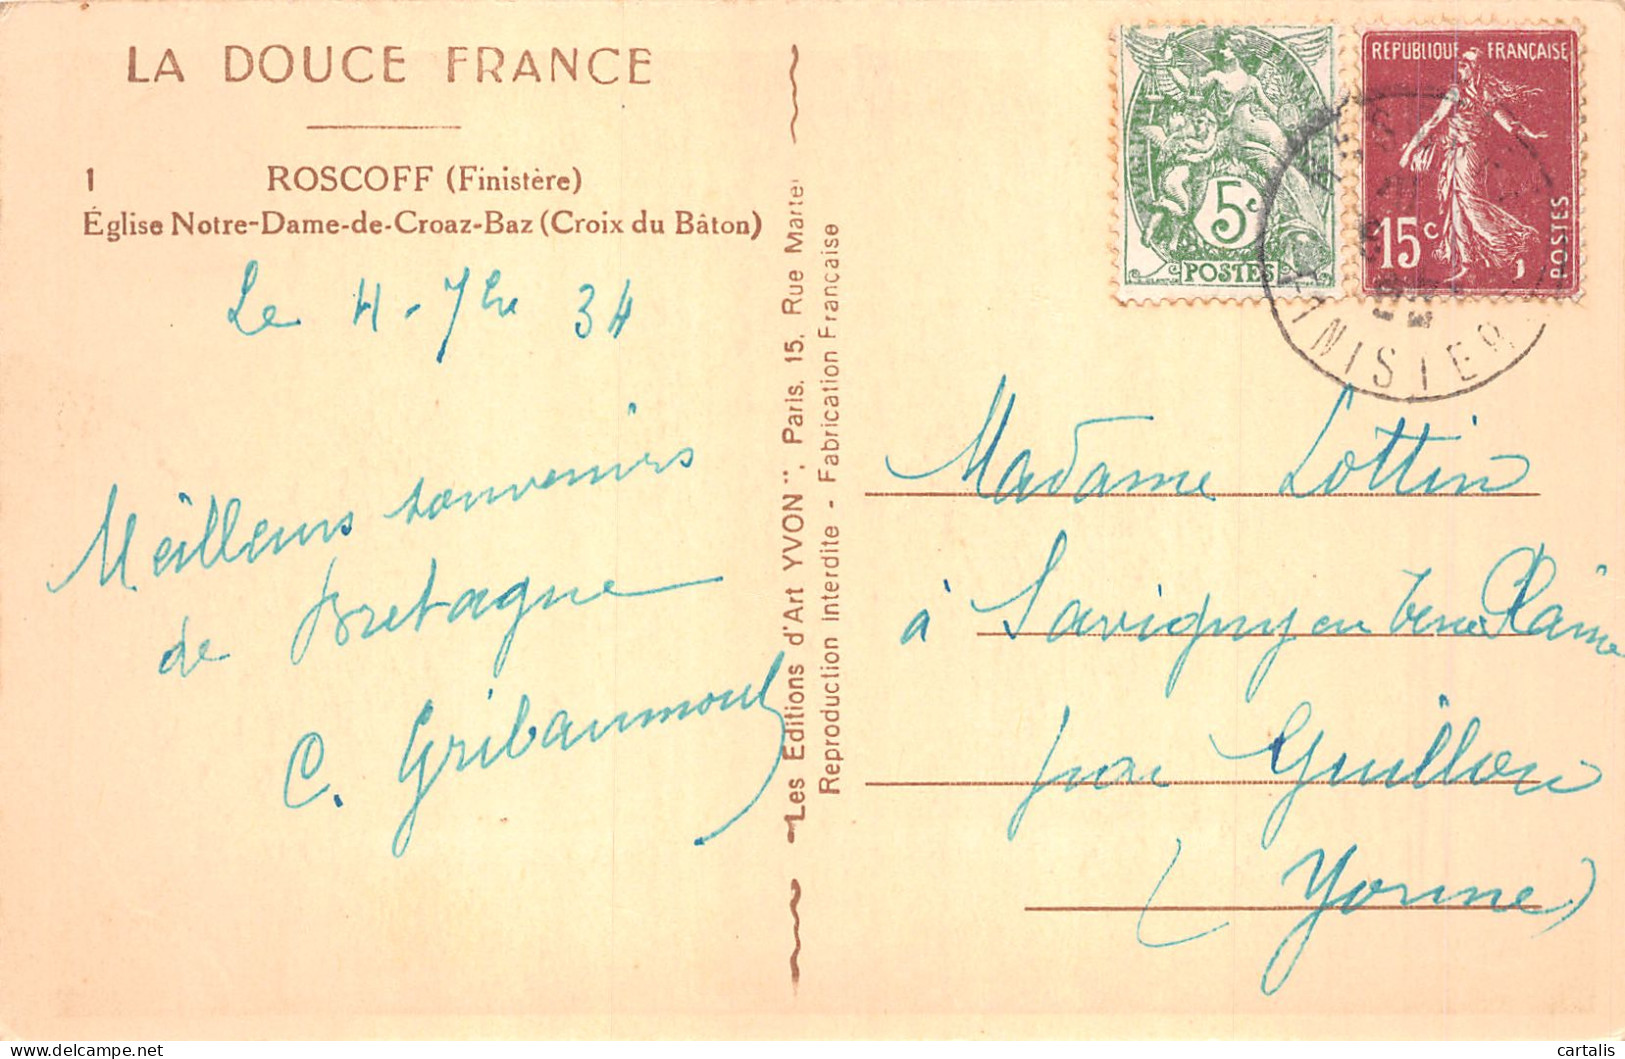 LA DOUCE FRANCE
1 ROSCOFF (Finistère)
Église Notre-Dame-de-Croaz-Baz (Croix du Bâton)
Le 4-7bre 34
Meilleurs souvenirs
de Bretagne
C. Gribaumont
"Les Editions d'Art YVON", Paris, 15, Rue Martel
Reproduction Interdite - Fabrication Française
5c
POSTES
RÉPUBLIQUE FRANÇAISE
15c
POSTES
FINISTER
Madame Lottin
à Savigny en Terre Plaine
par Guillon
(Yonne)
cartalis